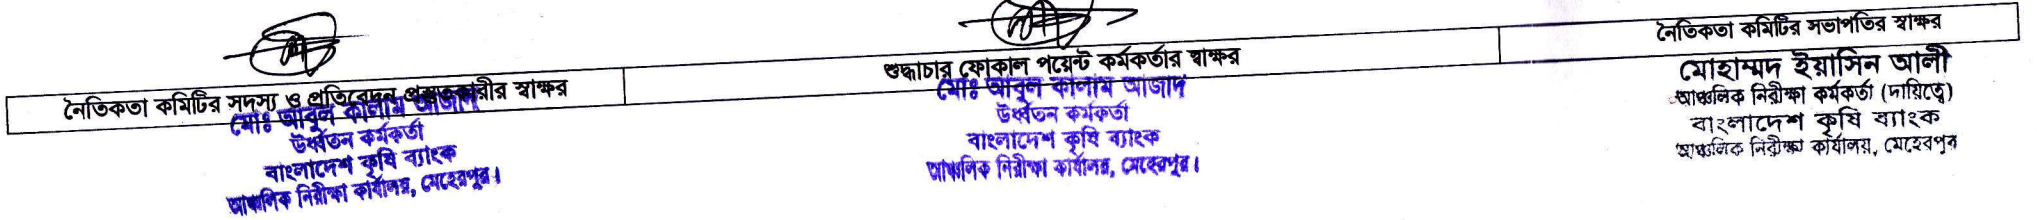 নৈতিকতা কমিটির সদস্য ও প্রতিবেদন প্রস্তুতকারীর স্বাক্ষর
মোঃ আবুল কালাম আজাদ
উর্ধ্বতন কর্মকর্তা
বাংলাদেশ কৃষি ব্যাংক
আঞ্চলিক নিরীক্ষা কার্যালয়, মেহেরপুর।
শুদ্ধাচার ফোকাল পয়েন্ট কর্মকর্তার স্বাক্ষর
মোঃ আবুল কালাম আজাদ
উর্ধ্বতন কর্মকর্তা
বাংলাদেশ কৃষি ব্যাংক
আঞ্চলিক নিরীক্ষা কার্যালয়, মেহেরপুর।
নৈতিকতা কমিটির সভাপতির স্বাক্ষর
মোহাম্মদ ইয়াসিন আলী
আঞ্চলিক নিরীক্ষা কর্মকর্তা (দায়িত্বে)
বাংলাদেশ কৃষি ব্যাংক
আঞ্চলিক নিরীক্ষা কার্যালয়, মেহেরপুর